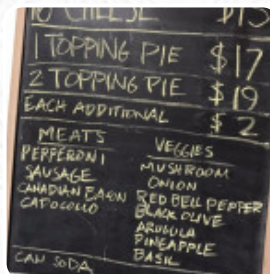 10" CHEESE $15
1 TOPPING PIE $17
2 TOPPING PIE $19
EACH ADDITIONAL $2
MEATS
PEPPERONI
SAUSAGE
CANADIAN BACON
CAPOCOLLO
VEGGIES
MUSHROOM
ONION
RED BELL PEPPER
BLACK OLIVE
ARUGULA
PINEAPPLE
BASIL
CAN SODA